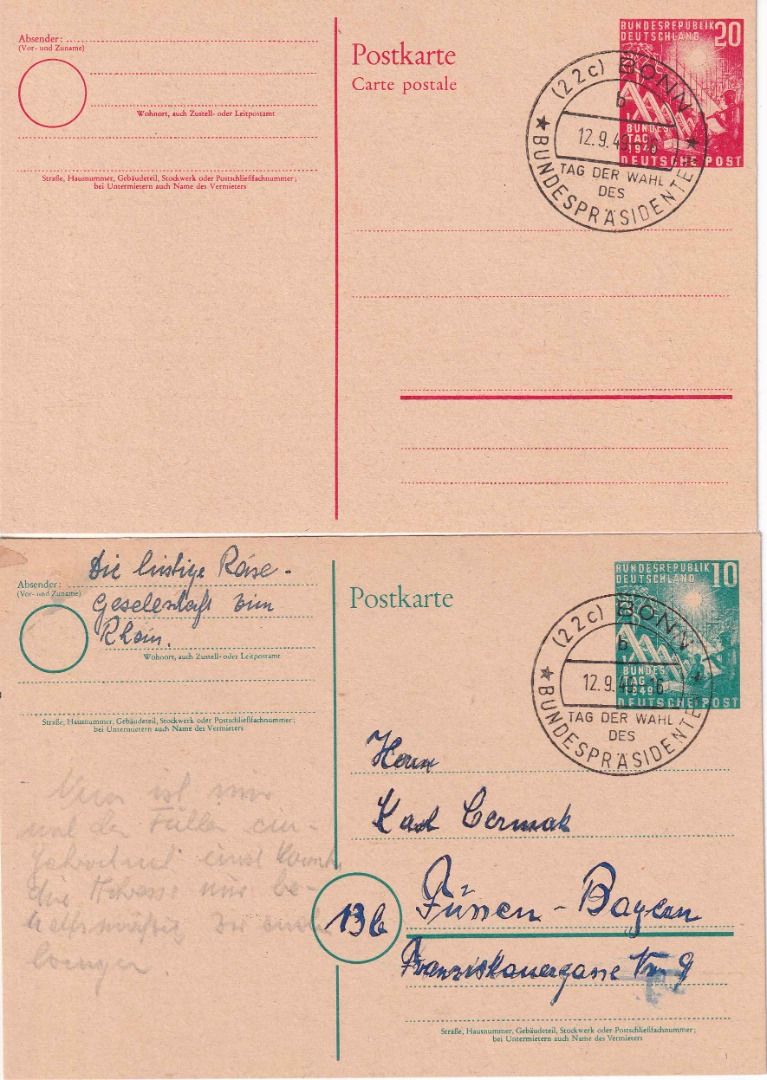 Absender:
(Vor- und Zuname)
Wohnort, auch Zustell- oder Leitpostamt
Straße, Hausnummer, Gebäudeteil, Stockwerk oder Postschließfachnummer;
bei Untermietern auch Name des Vermieters
Postkarte
Carte postale
BUNDESREPUBLIK
DEUTSCHLAND
20
BUNDES
TAG
1949
DEUTSCHE POST
(22c) BONN
b
12.9.49
TAG DER WAHL
DES
BUNDESPRÄSIDENTEN
Die lustige Reise-
Absender:
(Vor- und Zuname)
Gesellschaft vom
Rhein.
Wohnort, auch Zustell- oder Leitpostamt
Straße, Hausnummer, Gebäudeteil, Stockwerk oder Postschließfachnummer;
bei Untermietern auch Name des Vermieters
Nun ist mir
mal der Füller ein-
getrocknet und konnte
die Adresse nur be-
helfsmäßig
Postkarte
BUNDESREPUBLIK
DEUTSCHLAND
10
BUNDES
TAG
1949
DEUTSCHE POST
(22c) BONN
b
12.9.49
TAG DER WAHL
DES
BUNDESPRÄSIDENTEN
Herrn
Karl Cermak
13b
Füssen - Bayern
Franziskanergasse Nr. 9
Straße, Hausnummer, Gebäudeteil, Stockwerk oder Postschließfachnummer;
bei Untermietern auch Name des Vermieters